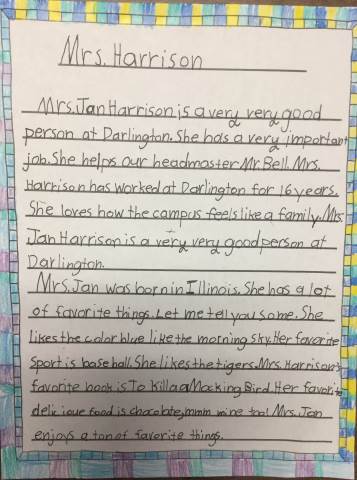 Mrs. Harrison
Mrs. Jan Harrison is a very very good
person at Darlington. She has a very important
job. She helps our headmaster Mr. Bell. Mrs.
Harrison has worked at Darlington for 16 years.
She loves how the campus feels like a family. Mrs
Jan Harrison is a very very good person at
Darlington.
Mrs. Jan was born in Illinois. She has a lot
of favorite things. Let me tell you some. She
likes the color blue like the morning sky. Her favorite
sport is baseball. She likes the tigers. Mrs. Harrison's
favorite book is To Kill a Mocking Bird. Her favorite
delicioue food is chocolate, mmm mine too! Mrs. Jan
enjoys a ton of favorite things.